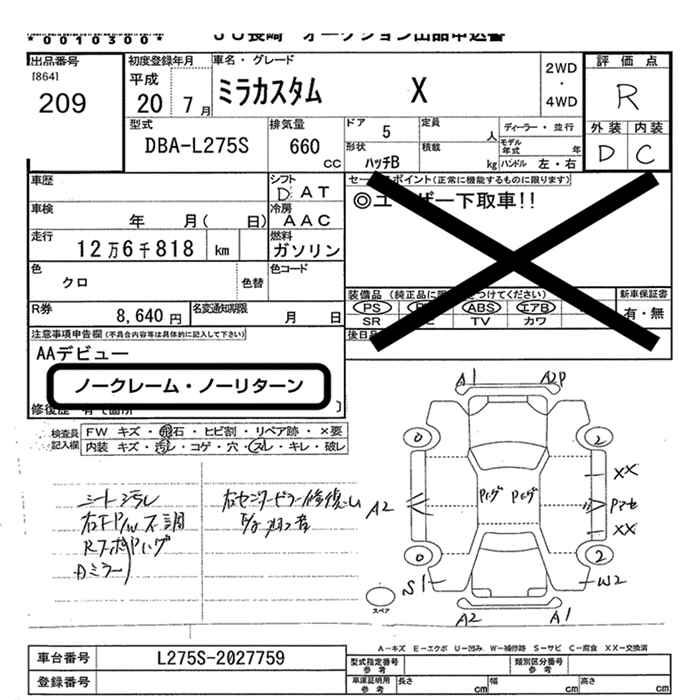 *0010300* JU長崎 オークション出品申込書
出品番号 初度登録年月 車名・グレード 評価点
[864] 平成 2WD
209 20 7月 ミラカスタム X ・ R
4WD
型式 排気量 ドア 5 定員 人 ディーラー・並行 外装 内装
DBA-L275S 660 CC 形状 ハッチB 積載 kg モデル年式 年 D C
ハンドル 左・右
車歴 シフト D AT セールスポイント(正常に機能するものに限ります)
車検 年 月( 日) 冷房 AAC ◎ユーザー下取車!!
走行 12万6千818 km 燃料 ガソリン
色 クロ 色替 色コード
装備品(純正品に限
つけてください) 新車保証書
R券 8,640円 名変通知期限 月 日 PS ABS エアB 有・無
SR TV カワ
注意事項申告欄(不具合内容等は具体的に記入して下さい) 後日品
AAデビュー
ノークレーム・ノーリターン
修復歴 有(箇所 )
検査員記入欄 FW キズ・飛石・ヒビ割・リペア跡・×要
内装 キズ・汚れ・コゲ・穴・スレ・キレ・破レ
シート汚レ
右F P/W不調
A1 A2P
0 2
XX
A2
XX
0 2
S1 W2
スペア
A2 A1
A-キズ E-エクボ U-凹み W-補修跡 S-サビ C-腐食 XX-交換済
車台番号 L275S-2027759 型式指定番号 参考 類別区分番号 参考
登録番号 車庫証明用 参考 長さ cm 幅 cm 高さ cm